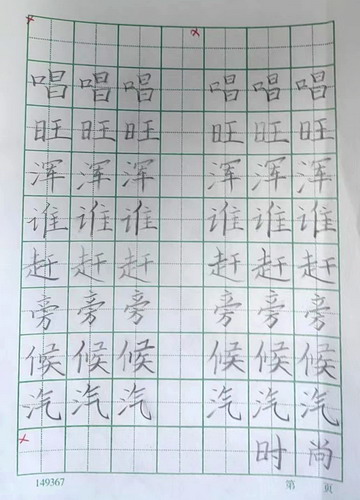 唱唱唱 唱唱唱
旺旺旺 旺旺旺
浑浑浑 浑浑浑
谁谁谁 谁谁谁
赶赶赶 赶赶赶
旁旁旁 旁旁旁
候候候 候候候
汽汽汽 汽汽汽
时尚
149367 第 页